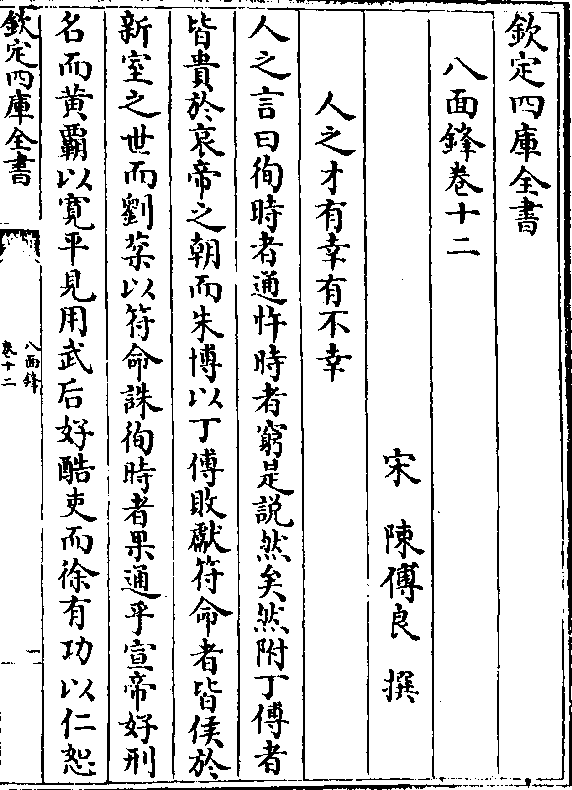 欽定四庫全書
八面鋒卷十二
宋　陳傅良　撰
人之才有幸有不幸
人之言曰徇時者通忤時者窮是説然矣然附丁傅者
皆貴於哀帝之朝而朱博以丁傅敗獻符命者皆侯於
新室之世而劉棻以符命誅徇時者果通乎宣帝好刑
名而黄霸以寛平見用武后好酷吏而徐有功以仁恕
欽定四庫全書
八面鋒
卷十二
一